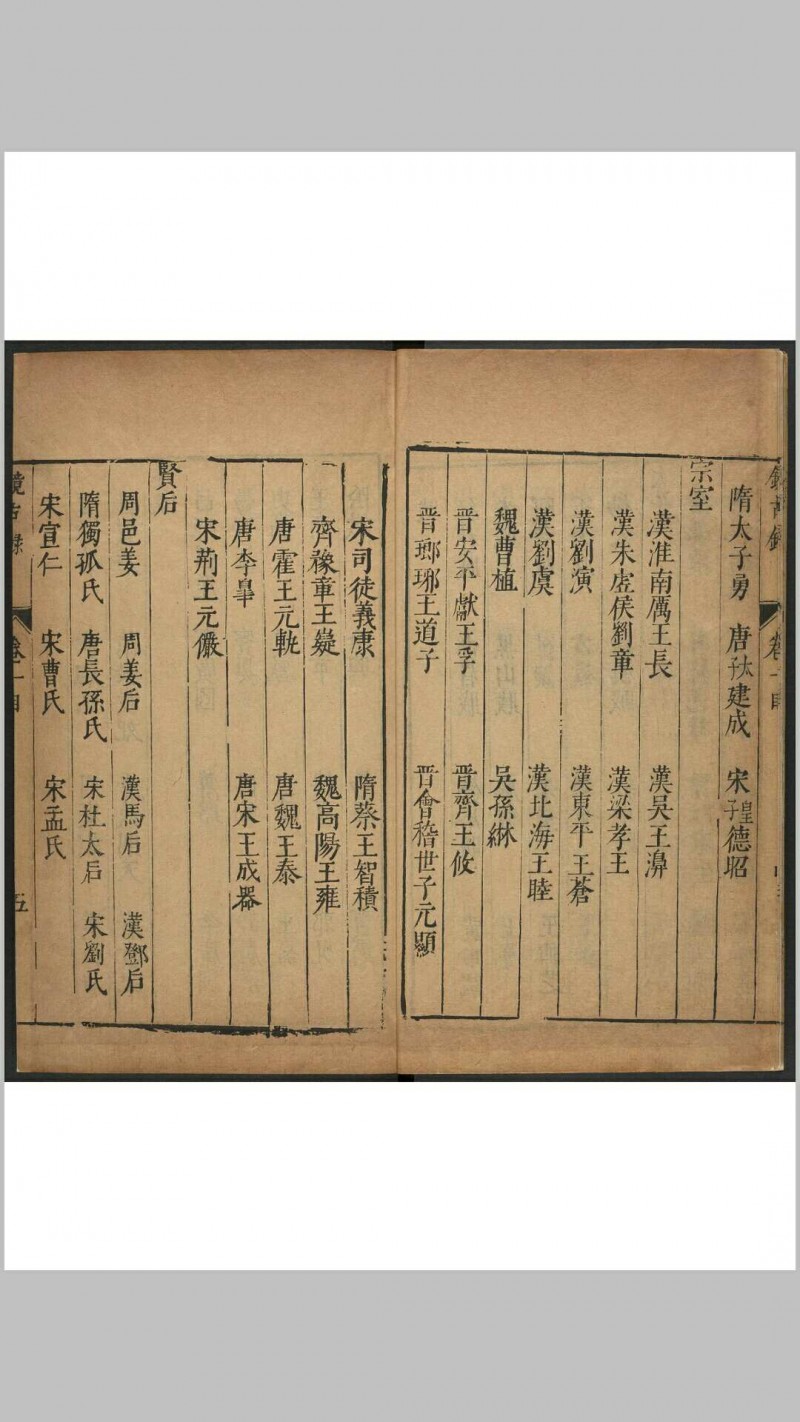 隋太子勇　唐太子建成　宋皇子德昭
宗室
漢淮南厲王長　漢吳王濞
漢朱虛侯劉章　漢梁孝王
漢劉演　漢東平王蒼
漢劉虞　漢北海王睦
魏曹植　吳孫綝
晉安平獻王孚　晉齊王攸
晉瑯琊王道子　晉會稽世子元顯
宋司徒義康　隋蔡王智積
齊豫章王嶷　魏高陽王雍
唐霍王元軌　唐魏王泰
唐李皐　唐宋王成器
宋荊王元儼
賢后
周邑姜　周姜后　漢馬后　漢鄧后
隋獨孤氏　唐長孫氏　宋杜太后　宋劉氏
宋宣仁　宋曹氏　宋孟氏
鏡古錄　卷一目　五